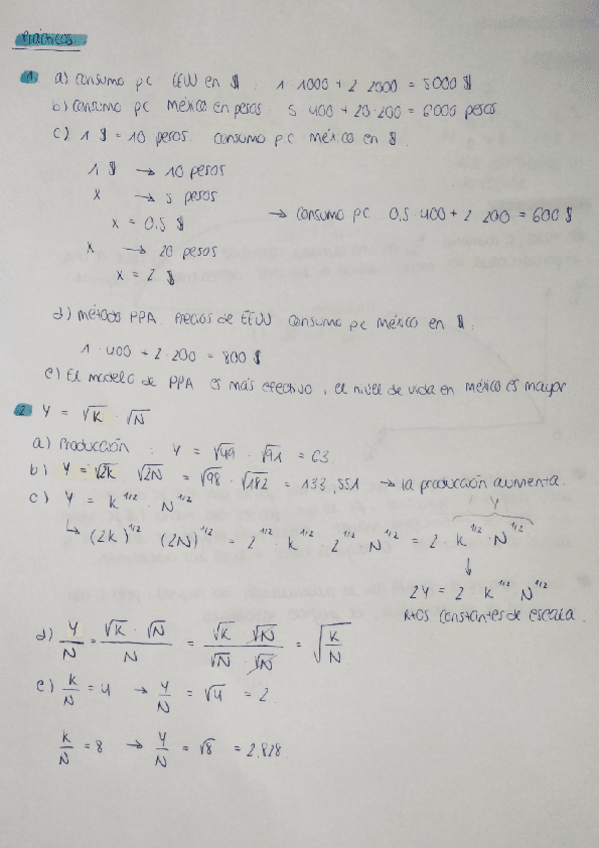 Prácticos
1 a) consumo pc EEUU en $ : 1·1000 + 2·2000 = 5000 $
b) consumo pc México en pesos: 5·400 + 20·200 = 6000 pesos
c) 1 $ = 10 pesos. consumo pc México en $.
1 $ → 10 pesos
x → 5 pesos
x = 0,5 $
→ consumo pc 0,5·400 + 2·200 = 600 $
x → 20 pesos
x = 2 $
d) método PPA. Precios de EEUU consumo pc México en $:
1·400 + 2·200 = 800 $
e) El modelo de PPA es más efectivo, el nivel de vida en México es mayor
2 Y = √K · √N
a) Producción : Y = √49 · √91 = 63
b) Y = √2K · √2N = √98 · √182 = 133,551 → la producción aumenta.
c) Y = K^1/2 · N^1/2
Y
↳ (2K)^1/2 (2N)^1/2 = 2^1/2 · K^1/2 · 2^1/2 · N^1/2 = 2 · K^1/2 · N^1/2
↓
2Y = 2 · K^1/2 N^1/2
Rtos constantes de escala.
d) Y/N = √K · √N / N = √K · √N / √N · √N = √K/N
e) K/N = 4 → Y/N = √4 = 2
K/N = 8 → Y/N = √8 = 2,828